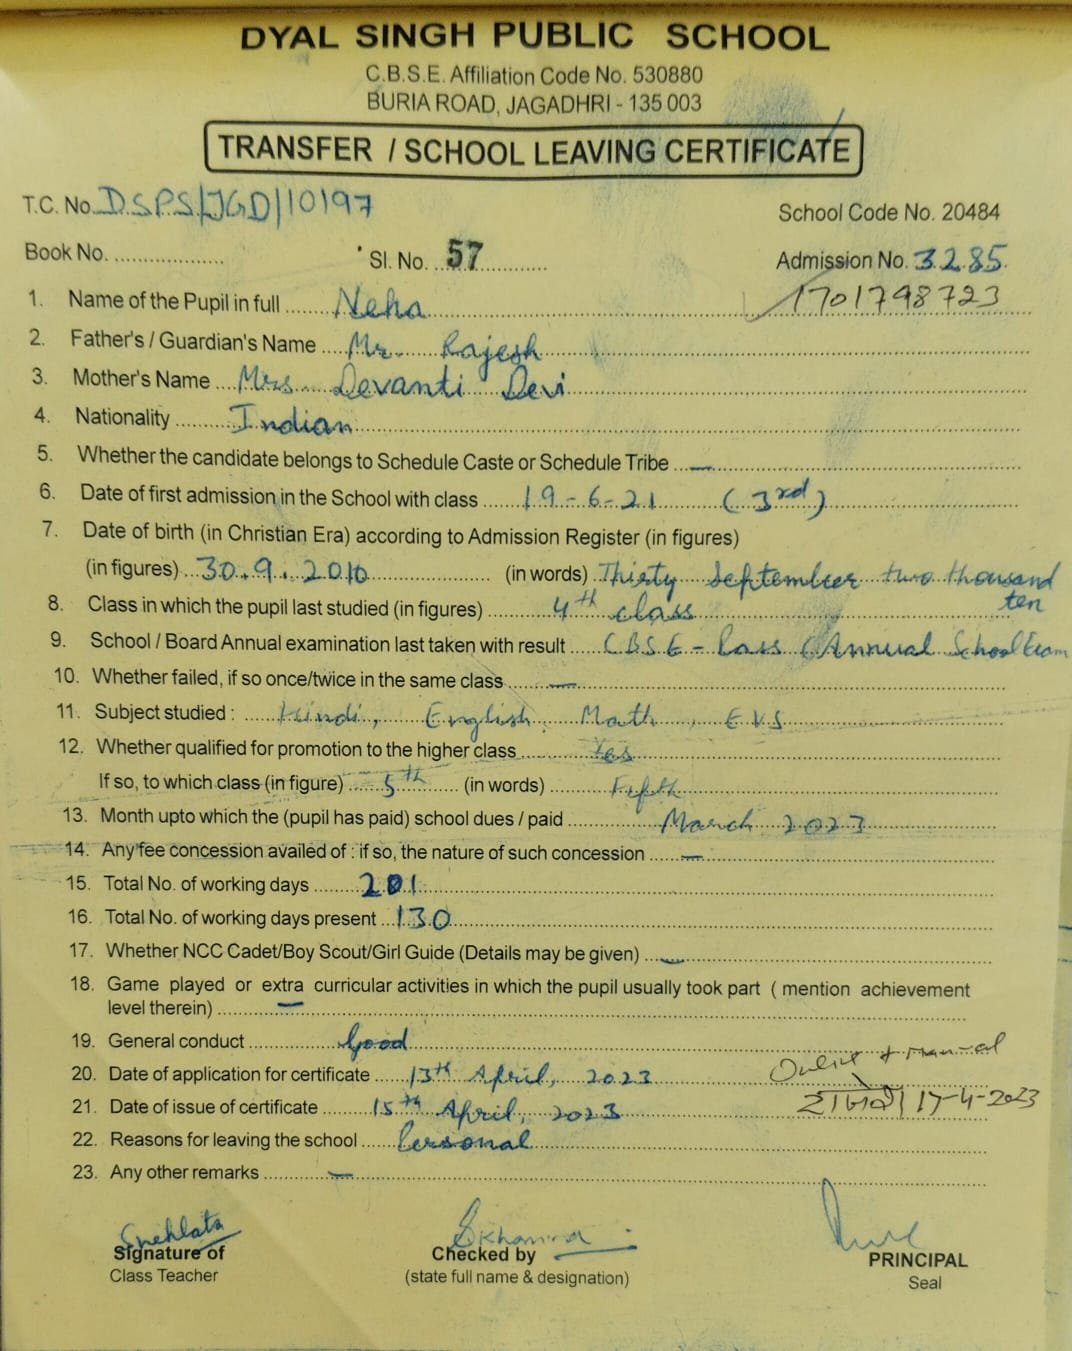 DYAL SINGH PUBLIC SCHOOL
C.B.S.E. Affiliation Code No. 530880
BURIA ROAD, JAGADHRI - 135 003
TRANSFER / SCHOOL LEAVING CERTIFICATE
T.C. No. DSPS/JGD/10197
School Code No. 20484
Book No. .................... Sl. No. 57 Admission No. 3285
1. Name of the Pupil in full ....... Neha 1701798723
2. Father's / Guardian's Name .... Mr. Rajesh
3. Mother's Name .... Mrs. Devanti Devi
4. Nationality ......... Indian
5. Whether the candidate belongs to Schedule Caste or Schedule Tribe .... —
6. Date of first admission in the School with class ...... 19-6-21 (3rd)
7. Date of birth (in Christian Era) according to Admission Register (in figures)
(in figures) .. 30.9.2010 (in words) Thirty September two thousand
ten
8. Class in which the pupil last studied (in figures) ......... 4th class
9. School / Board Annual examination last taken with result ..... CBSE - Pass (Annual School Exam
10. Whether failed, if so once/twice in the same class ...... —
11. Subject studied : ..... Hindi, English, Math, EVS
12. Whether qualified for promotion to the higher class ......... Yes
If so, to which class (in figure) ..... 5th ..... (in words) ......... Fifth
13. Month upto which the (pupil has paid) school dues / paid ......... March 2023
14. Any fee concession availed of : if so, the nature of such concession ..... —
15. Total No. of working days ........ 201
16. Total No. of working days present ... 130
17. Whether NCC Cadet/Boy Scout/Girl Guide (Details may be given) .... —
18. Game played or extra curricular activities in which the pupil usually took part ( mention achievement
level therein) ......... —
19. General conduct ............ Good
Online + Manual
20. Date of application for certificate ..... 13th April, 2023
21. Date of issue of certificate ....... 15th April, 2023 17-4-2023
22. Reasons for leaving the school ...... Personal
23. Any other remarks ............ —
Snehlata
Signature of Checked by PRINCIPAL
Class Teacher (state full name & designation) Seal